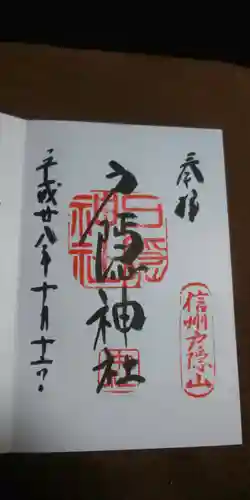 奉拝
信州戸隠山
戸隠神社
平成廿八年十月十二日